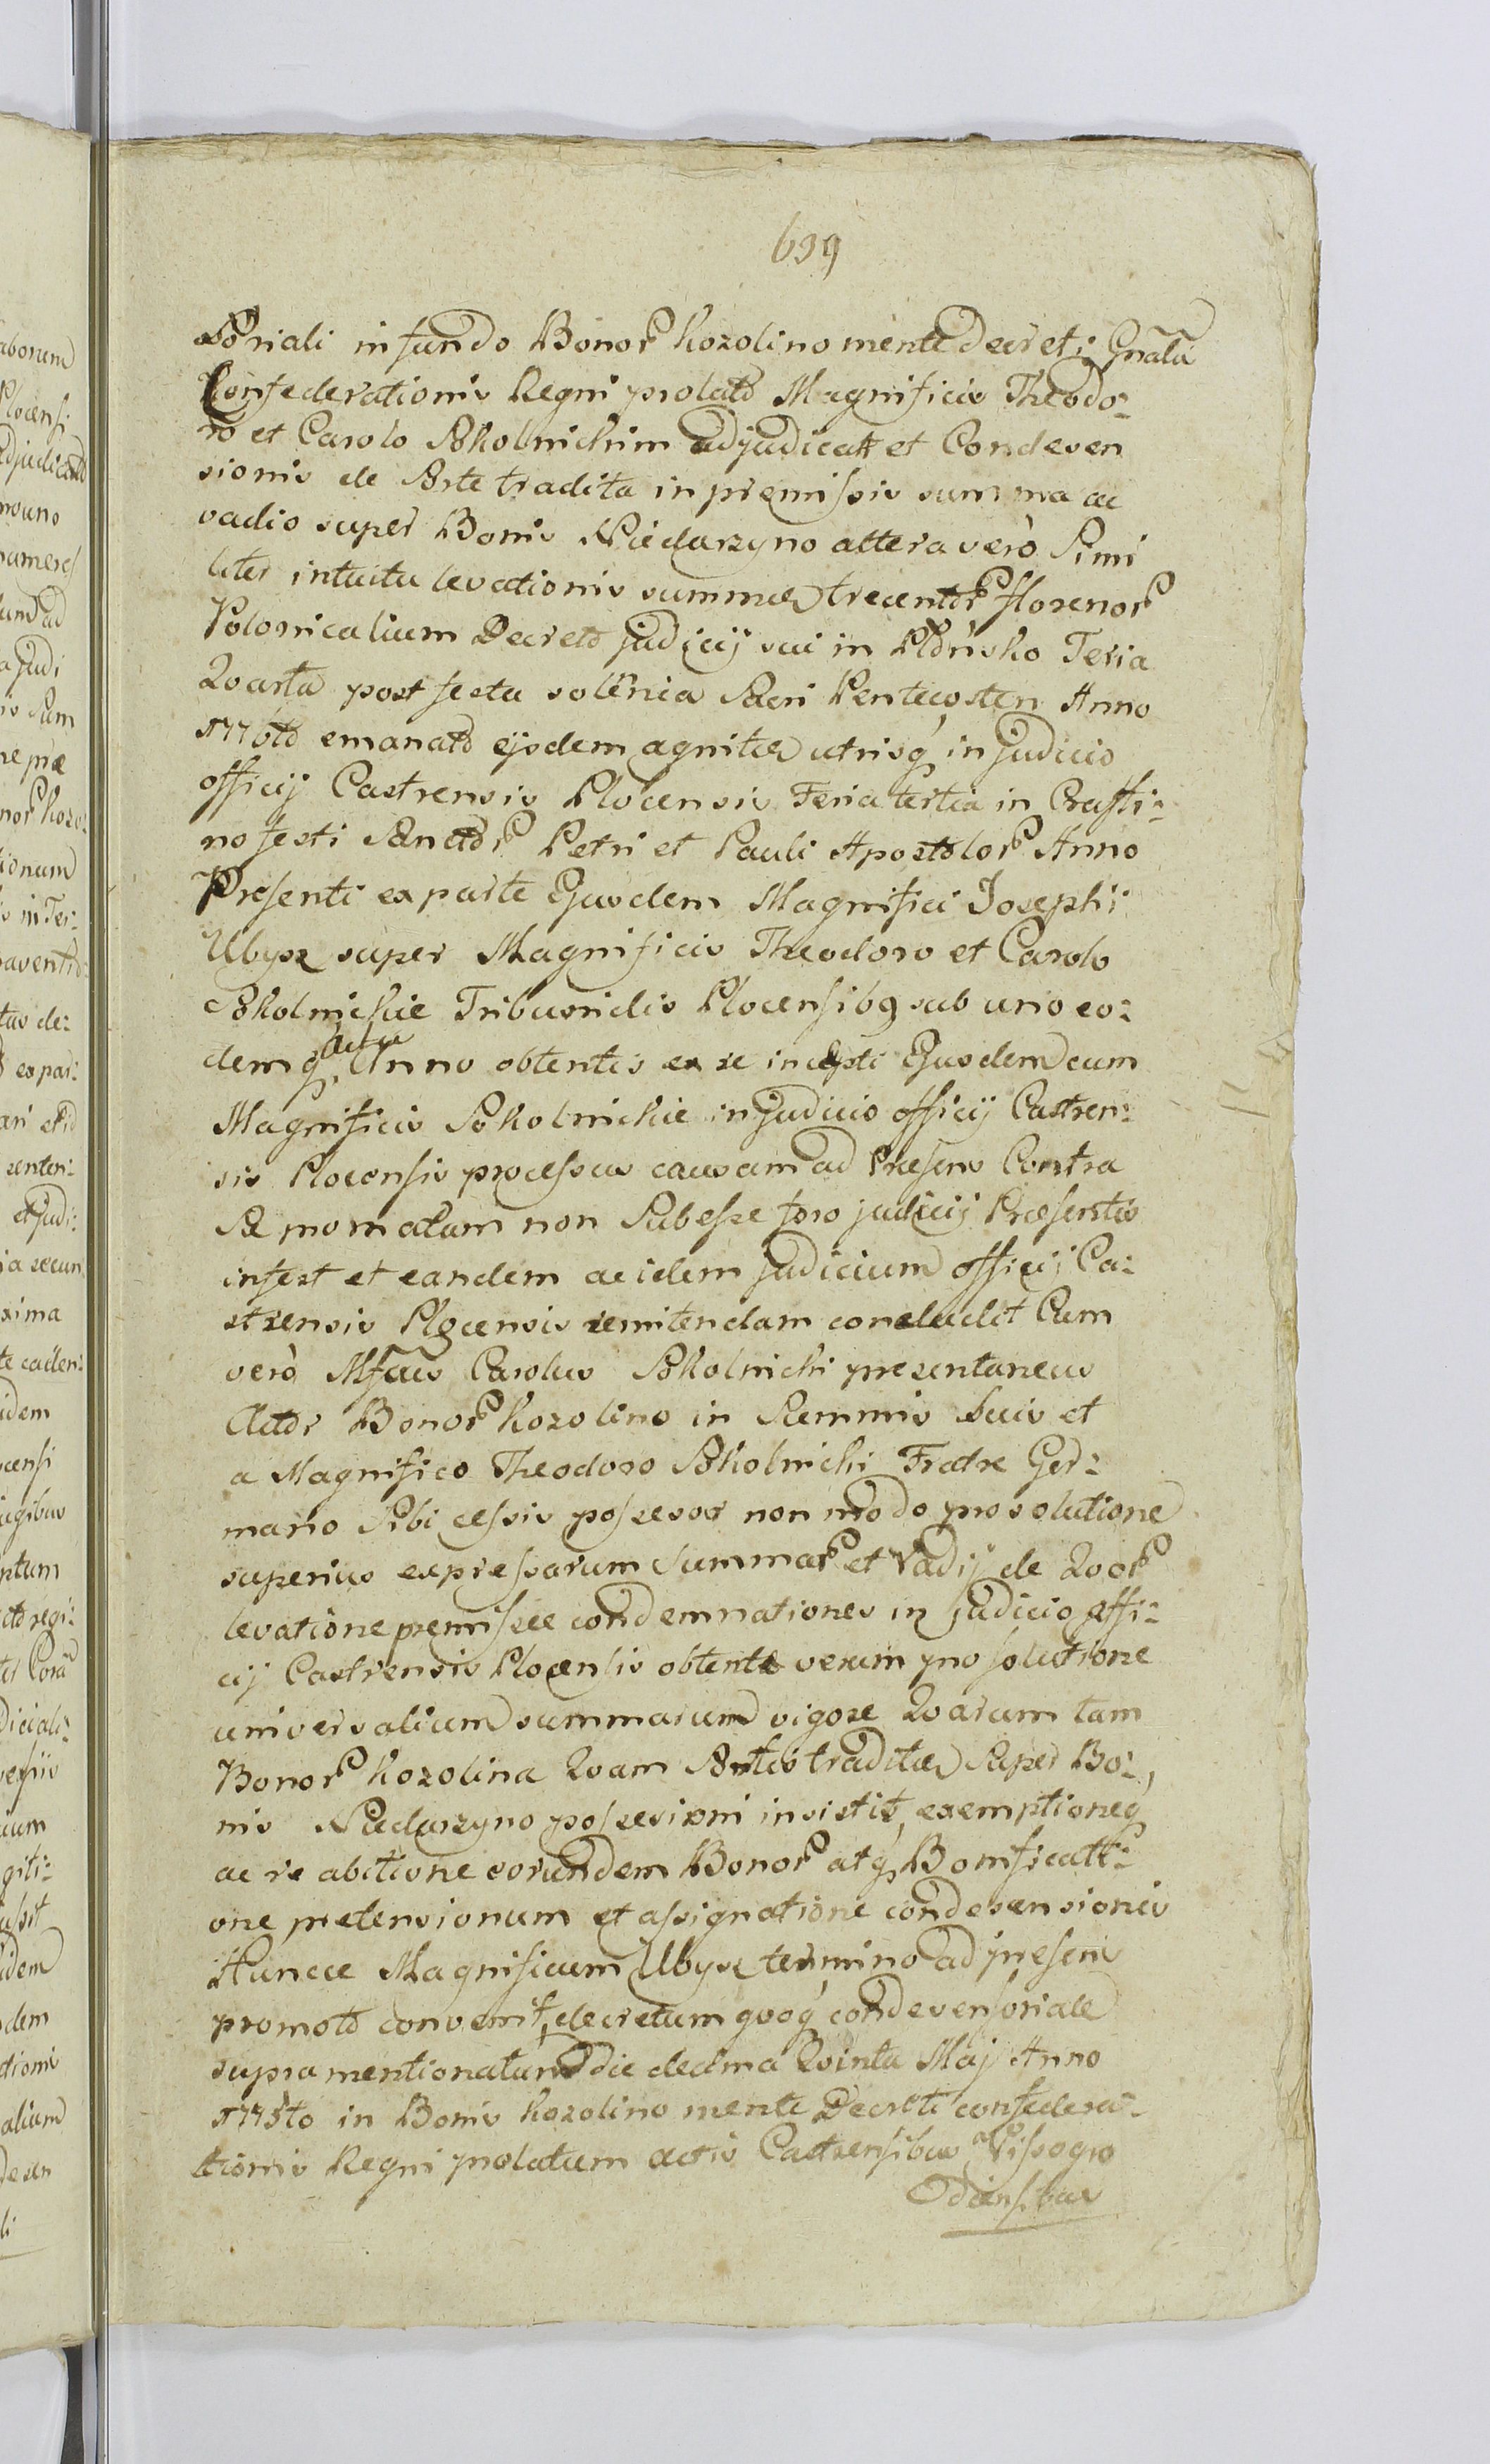 639
Soriali in fundo Bonor Kozolino mente Decreti Gnalis
Confederationis Regni prolato Magnificis Theodo:
ro et Carolo Skolnickim adjudicatt et Condesen
sionis de Arte tradita in premissis summa ac
vadio super Bonis Niedarzyno altera verò Simi
liter intuitu levationis summae trecentor florenor
Polonicalium Decreto judicij sui in Płonsko Feria
Quarta post festa solenia Sacri Pentecosten Anno
1776to emanato ejsdem agnitae utrisq in judicio
officij Castrensis Plocensis Feria tertia in Crasti:
no festi Sanctor Petri et Pauli Apostolor Anno
Presenti ex parte Ejusdem Magnifici Josephi
Ubysz super Magnificis Theodoro et Carolo
Skolnickie Tribunidis Plocensibg sub uno eo:
demq actu Anno obtentis ex re incepti Ejusdem cum
Magnificis Skolnickie in judicio officij Castren:
sis Plocensis processus causam ad Praesens Contra
Se promotam non Subesse foro judicij Praesentis
infert et eandem ac idem judicium officij Ca:
strensis Plocensis remitendam concludit Cum
verò Mfcus Carolus Skolnicki presentaneus
Actor Bonor Kozolino in Summis Suis et
a Magnifico Theodoro Skolnicki Fratre Ger:
mano Sibi cessis possesor non modo pro solutione
superius expressarum Summar et Vadij de Quor
levatione premissae condemnationes in judicio offi:
cij Castrensis Plocensis obtente verum pro solutione
universalium summarum vigore Quarum tam
Bonor Kozolina Quam Artis traditae Super Bo:
nis Niedarzyno possesioni insistit, exemptioneq
ac re abitione eorundem Bonor atq Bonificatti:
one pretensionum et assignatione condesensionis
Huncce Magnificum Ubysz termino ad presens
promoto convenit, decretum quoq condesensoriale
supra mentionatum die decima Quinta Maj Anno
1775to in Bonis Kozolino mente Decreti confedera:
tionis Regni prolatum actis Castrensibus Vissogro
Odiensibus